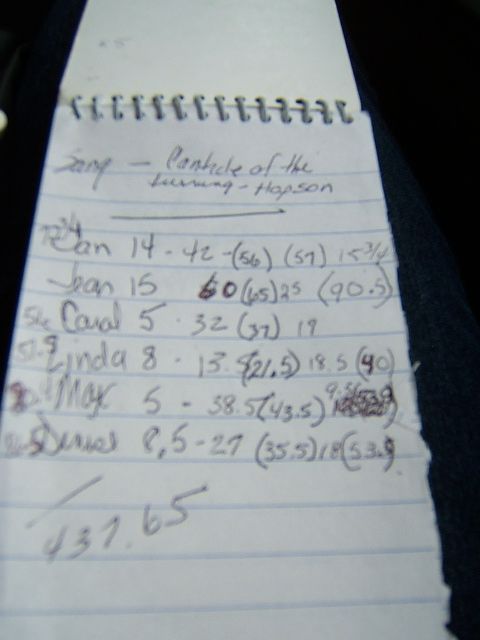 Song - Canticle of the
turning - Hopson
72 3/4 Jan 14 - 42 - (56) (57) 15 3/4
Jean 15 60 (65) 25 (90.5)
56 Carol 5 - 32 (37) 19
Linda 8 - 13.5 (21.5) 18.5 (40)
Max 5 - 38.5 (43.5) 9.5
Denise 8,5 - 27 (35.5) 18 (53.5)
437.65